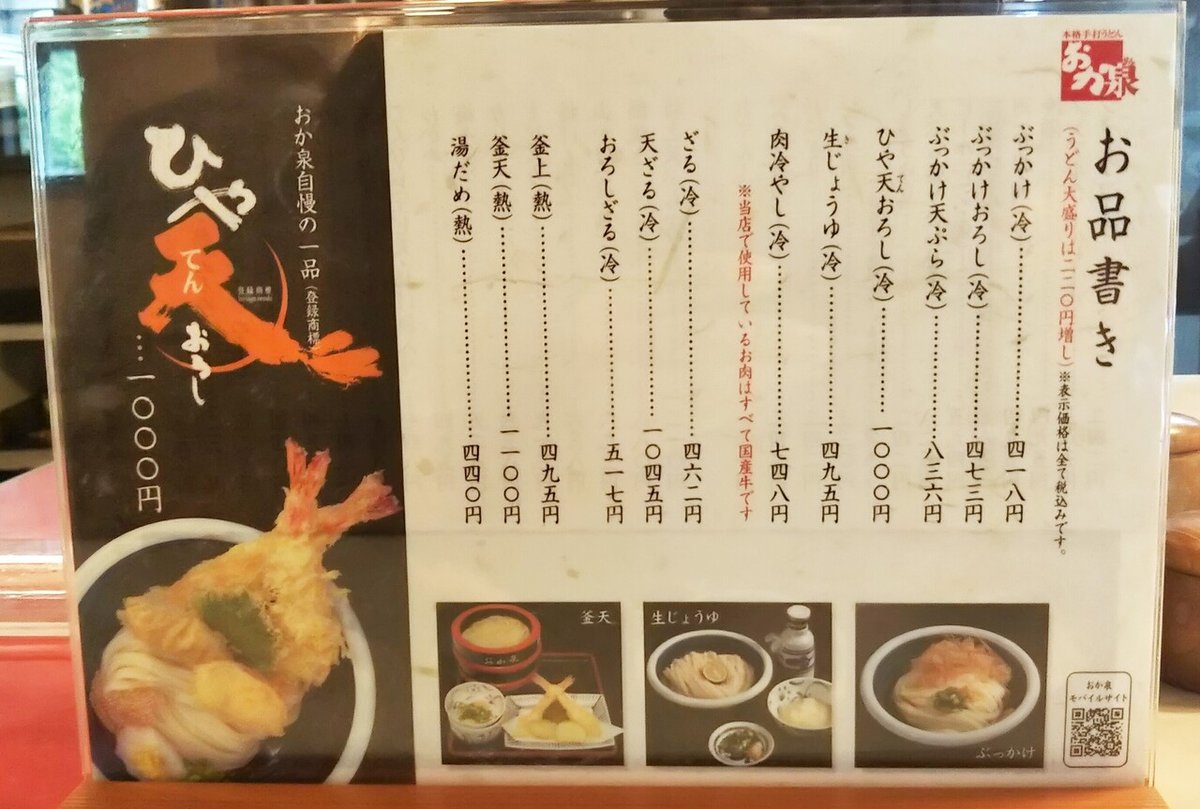 本格手打うどん
おか泉
お品書き
(うどん大盛りは二二〇円増し)※表示価格は全て税込みです。
ぶっかけ(冷)…四一八円
ぶっかけおろし(冷)…四七三円
ぶっかけ天ぷら(冷)…八三六円
ひや天おろし(冷)…一〇〇〇円
てん
生じょうゆ(冷)…四九五円
き
肉冷やし(冷)…七四八円
※当店で使用しているお肉はすべて国産牛です
ざる(冷)…四六二円
天ざる(冷)…一〇四五円
おろしざる(冷)…五一七円
釜上(熱)…四九五円
釜天(熱)…一一〇〇円
湯だめ(熱)…四四〇円
おか泉自慢の一品(登録商標)
ひや天おろし
てん
登録商標
…一〇〇〇円
釜天
おか泉
生じょうゆ
ぶっかけ
おか泉
モバイルサイト